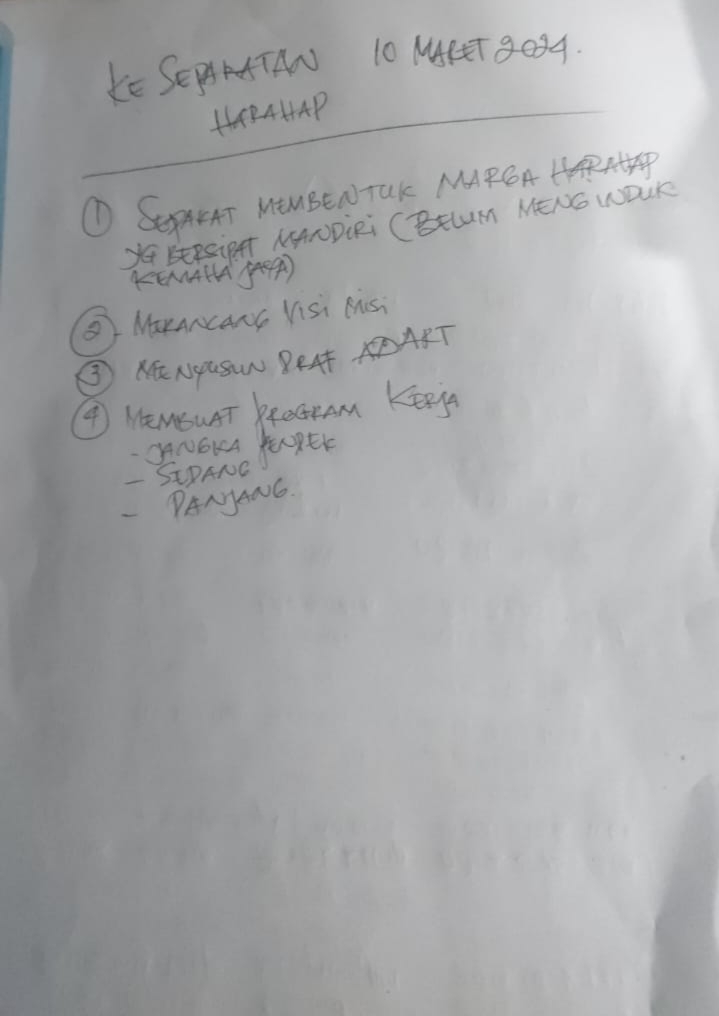 KESEPAKATAN 10 MARET 2024.
HARAHAP
① SEPAKAT MEMBENTUK MARGA HARAHAP
YG BERSIPAT MANDIRI (BELUM MENGINDUK
KEMAHA JAYA)
② - MERANCANG VISI MISI
③ MENYUSUN DRAF ADART
④ MEMBUAT PROGRAM KERJA
- JANGKA PENDEK
- SEDANG
- PANJANG.